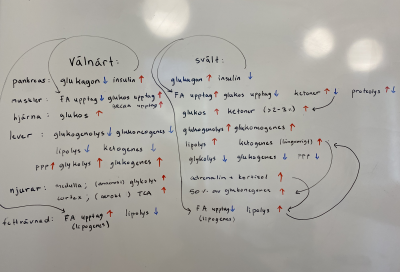 välnärt: svält:
pankreas: glukagon ↓ insulin ↑ glukagon ↑ insulin ↓
muskler: FA upptag ↓ glukos upptag ↑ FA upptag ↑ glukos upptag ↓ ketoner ↑↓ proteolys ↑↓
upptag ↑
hjärna: glukos ↑ glukos ↑ ketoner (>2-3v) ↑
lever: glukogenolys ↓ glukoneogenes ↓ glukogenolys ↑ glukoneogenes ↑
lipolys ↓ ketogenes ↓ lipolys ↑ ketogenes (långsamt) ↑
PPP ↑ glykolys ↑ glukogenes ↑ glykolys ↓ glukogenes ↓ PPP ↓
njurar: medulla; (anaerob) glykolys ↑ adrenalin + kortisol ↑
cortex; (aerob) TCA ↑ 50% av glukoneogenes ↑
fettvävnad: FA upptag ↑ lipolys ↓ FA upptag ↓ lipolys ↑
(lipogenes) (lipogenes)